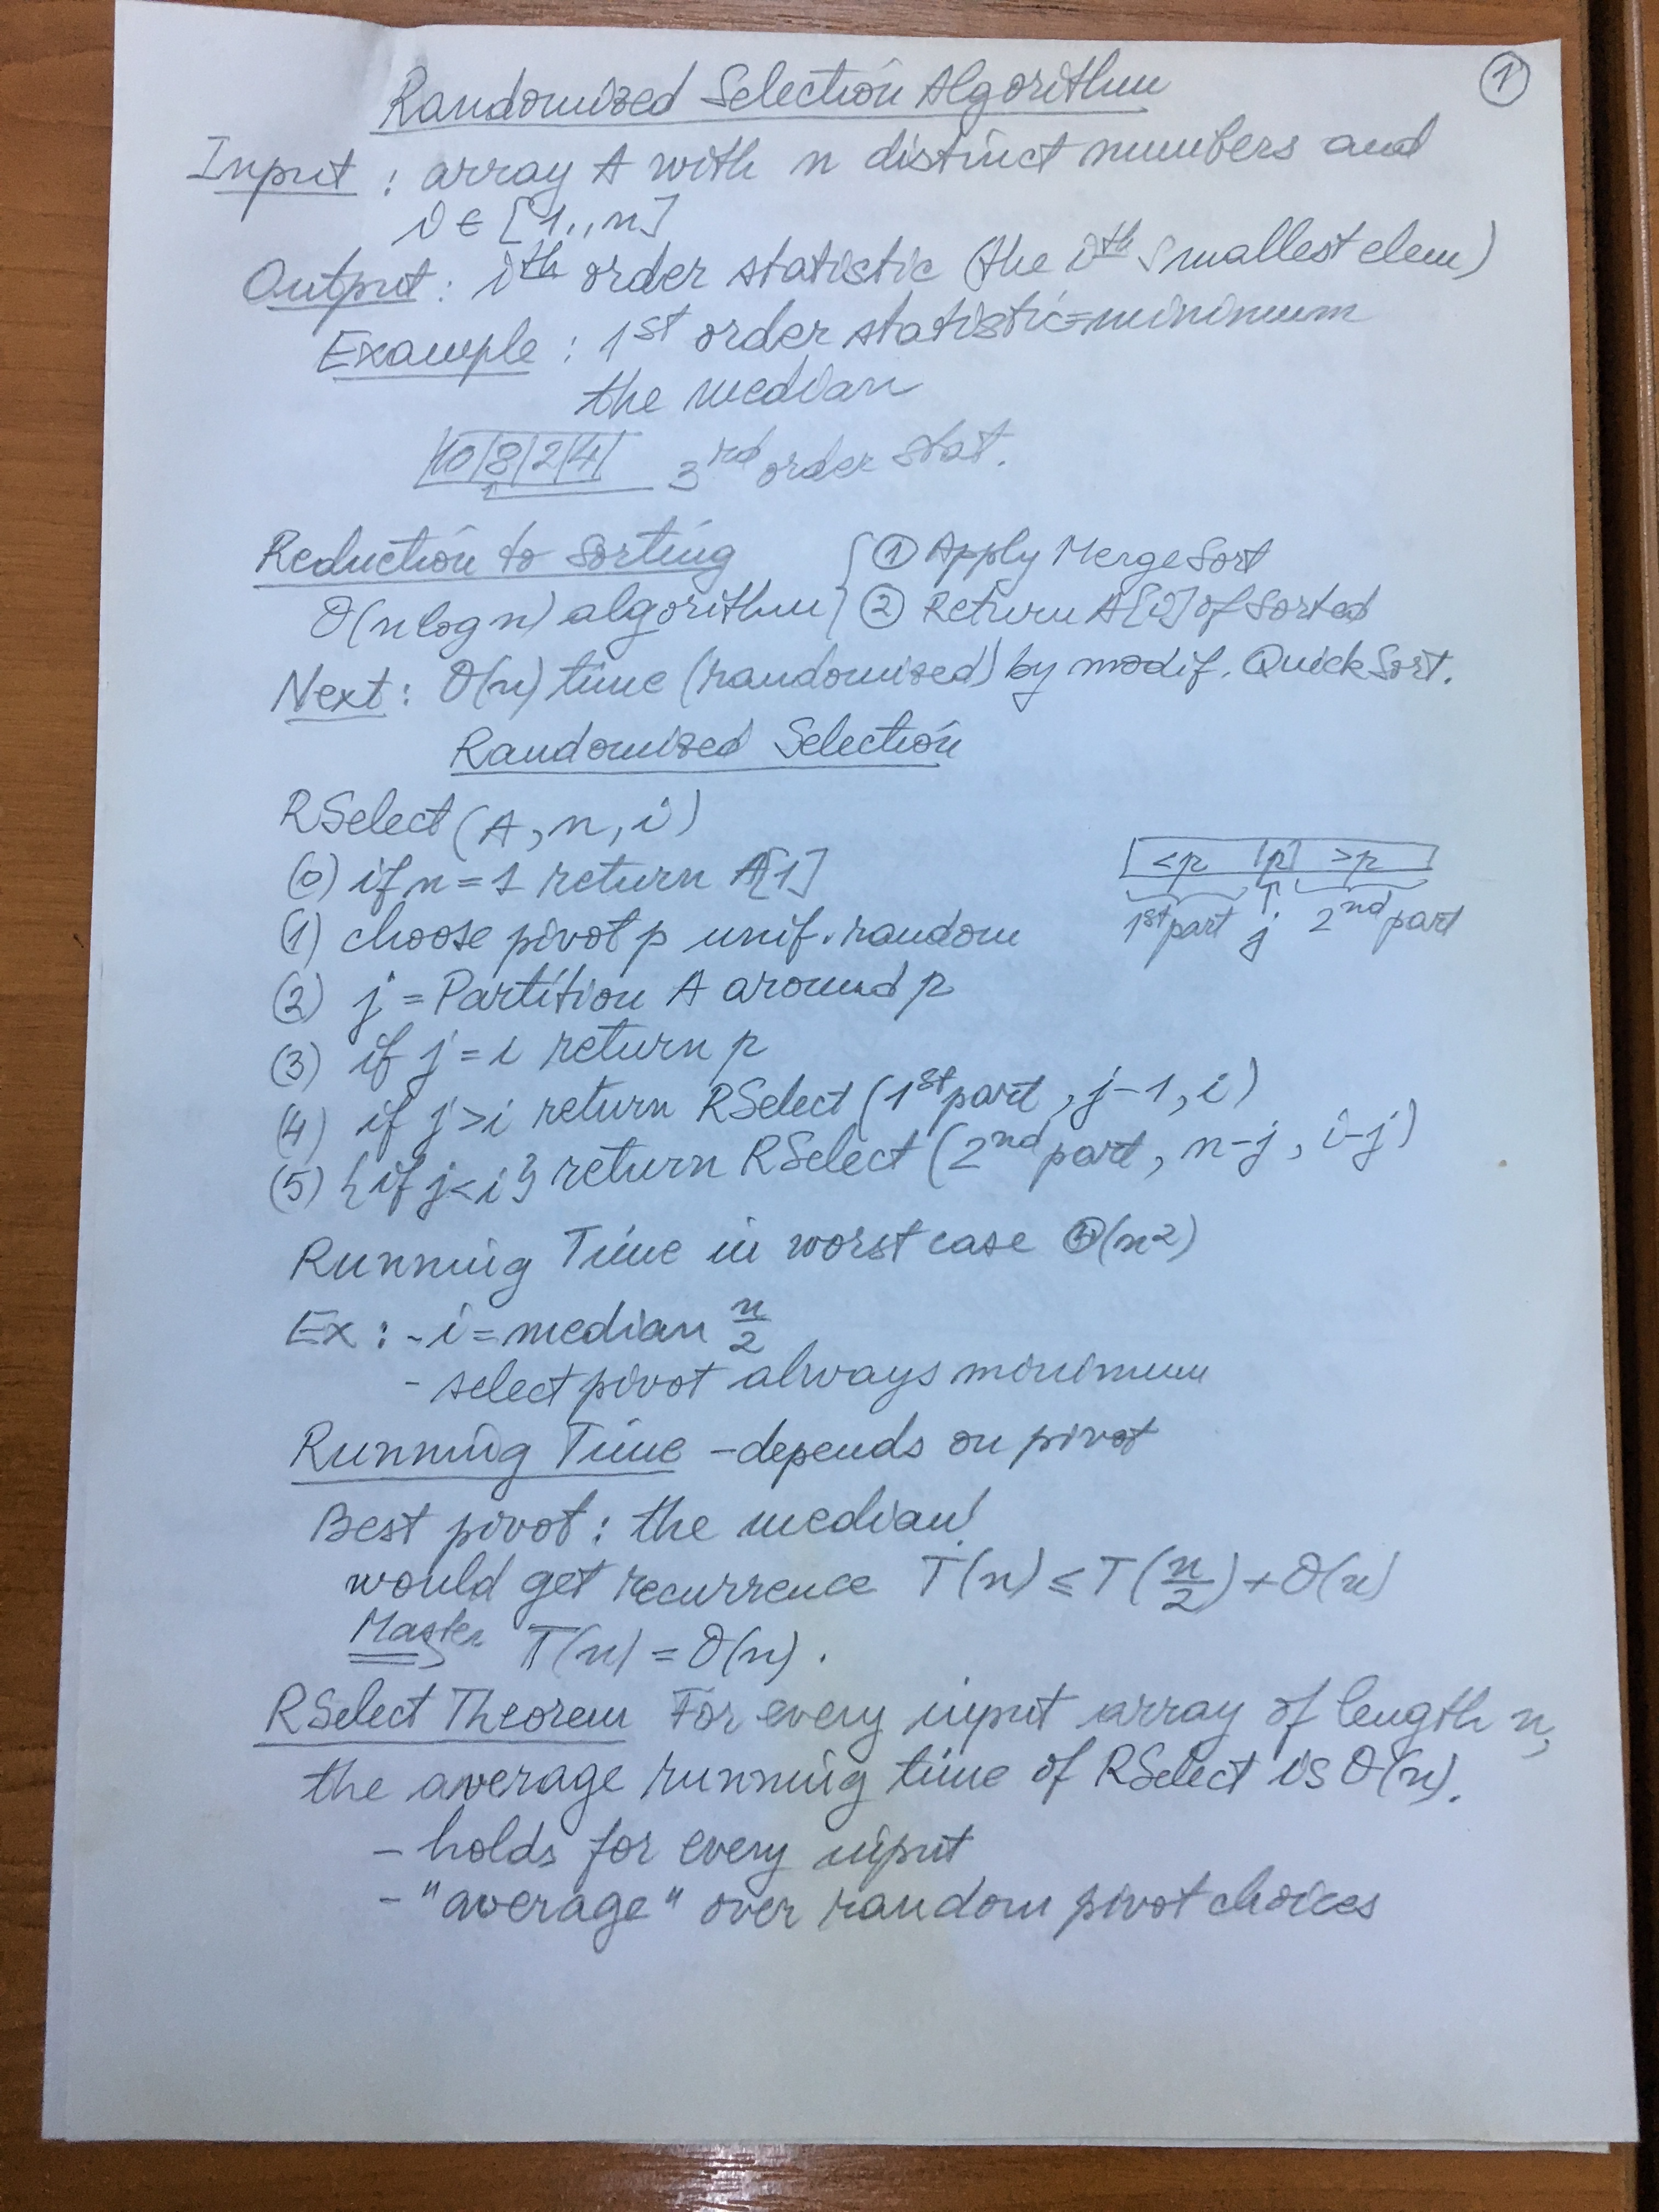 ①
Randomized Selection Algorithm
Input: array A with n distinct numbers and
i ∈ [1..n]
Output: iᵗʰ order statistic (the iᵗʰ smallest elem)
Example: 1ˢᵗ order statistic=minimum
the median
|10|8|2|4| 3ʳᵈ order stat.
↑
Reduction to Sorting
O(n log n) algorithm { ① Apply MergeSort
② Return A[i] of sorted
Next: O(n) time (randomized) by modif. QuickSort.
Randomized Selection
RSelect(A, n, i)
(0) if n=1 return A[1]
(1) choose pivot p unif. random
(2) j = Partition A around p
(3) if j=i return p
(4) if j>i return RSelect (1ˢᵗ part, j-1, i)
(5) {if j<i} return RSelect (2ⁿᵈ part, n-j, i-j)
<p |p| >p
1ˢᵗ part ↑ j 2ⁿᵈ part
Running Time in worst case Θ(n²)
Ex: - i = median n/2
- select pivot always minimum
Running Time - depends on pivot
Best pivot: the median!
would get recurrence T(n) ≤ T(n/2) + O(n)
Master T(n) = O(n).
RSelect Theorem For every input array of length n,
the average running time of RSelect is O(n).
- holds for every input
- "average" over random pivot choices